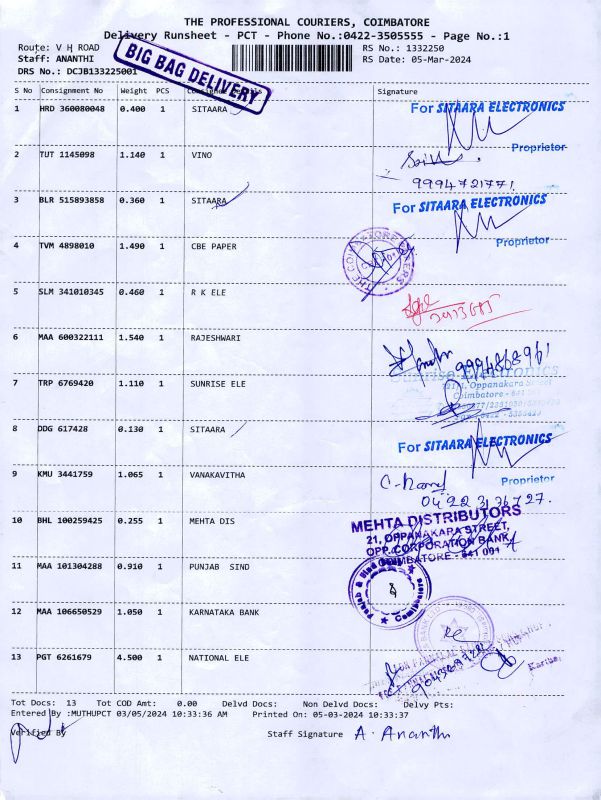 THE PROFESSIONAL COURIERS, COIMBATORE
Delivery Runsheet - PCT - Phone No.:0422-3505555 - Page No.:1
Route: V H ROAD RS No.: 1332250
Staff: ANANTHI RS Date: 05-Mar-2024
DRS No.: DCJB133225001
BIG BAG DELIVERY
S No Consignment No Weight PCS Consignee Details Signature
1 HRD 360080048 0.400 1 SITAARA For SITAARA ELECTRONICS
Proprietor
2 TUT 1145098 1.140 1 VINO
9994721771
3 BLR 515893858 0.360 1 SITAARA For SITAARA ELECTRONICS
Proprietor
4 TVM 4898010 1.490 1 CBE PAPER
5 SLM 341010345 0.460 1 R K ELE
6 MAA 600322111 1.540 1 RAJESHWARI
9994868961
7 TRP 6769420 1.110 1 SUNRISE ELE Sunrise Electronics
Oppanakara Street
Coimbatore - 641
8 DDG 617428 0.130 1 SITAARA For SITAARA ELECTRONICS
Proprietor
9 KMU 3441759 1.065 1 VANAKAVITHA
0422 3176727.
10 BHL 100259425 0.255 1 MEHTA DIS MEHTA DISTRIBUTORS
21, OPPANAKARA STREET,
OPP. CORPORATION BANK,
COIMBATORE - 641 001
11 MAA 101304288 0.910 1 PUNJAB SIND
Punjab & Sind
12 MAA 106650529 1.050 1 KARNATAKA BANK
13 PGT 6261679 4.500 1 NATIONAL ELE
Tot Docs: 13 Tot COD Amt: 0.00 Delvd Docs: Non Delvd Docs: Delvy Pts:
Entered By :MUTHUPCT 03/05/2024 10:33:36 AM Printed On: 05-03-2024 10:33:37
Verified By Staff Signature A. Ananthi